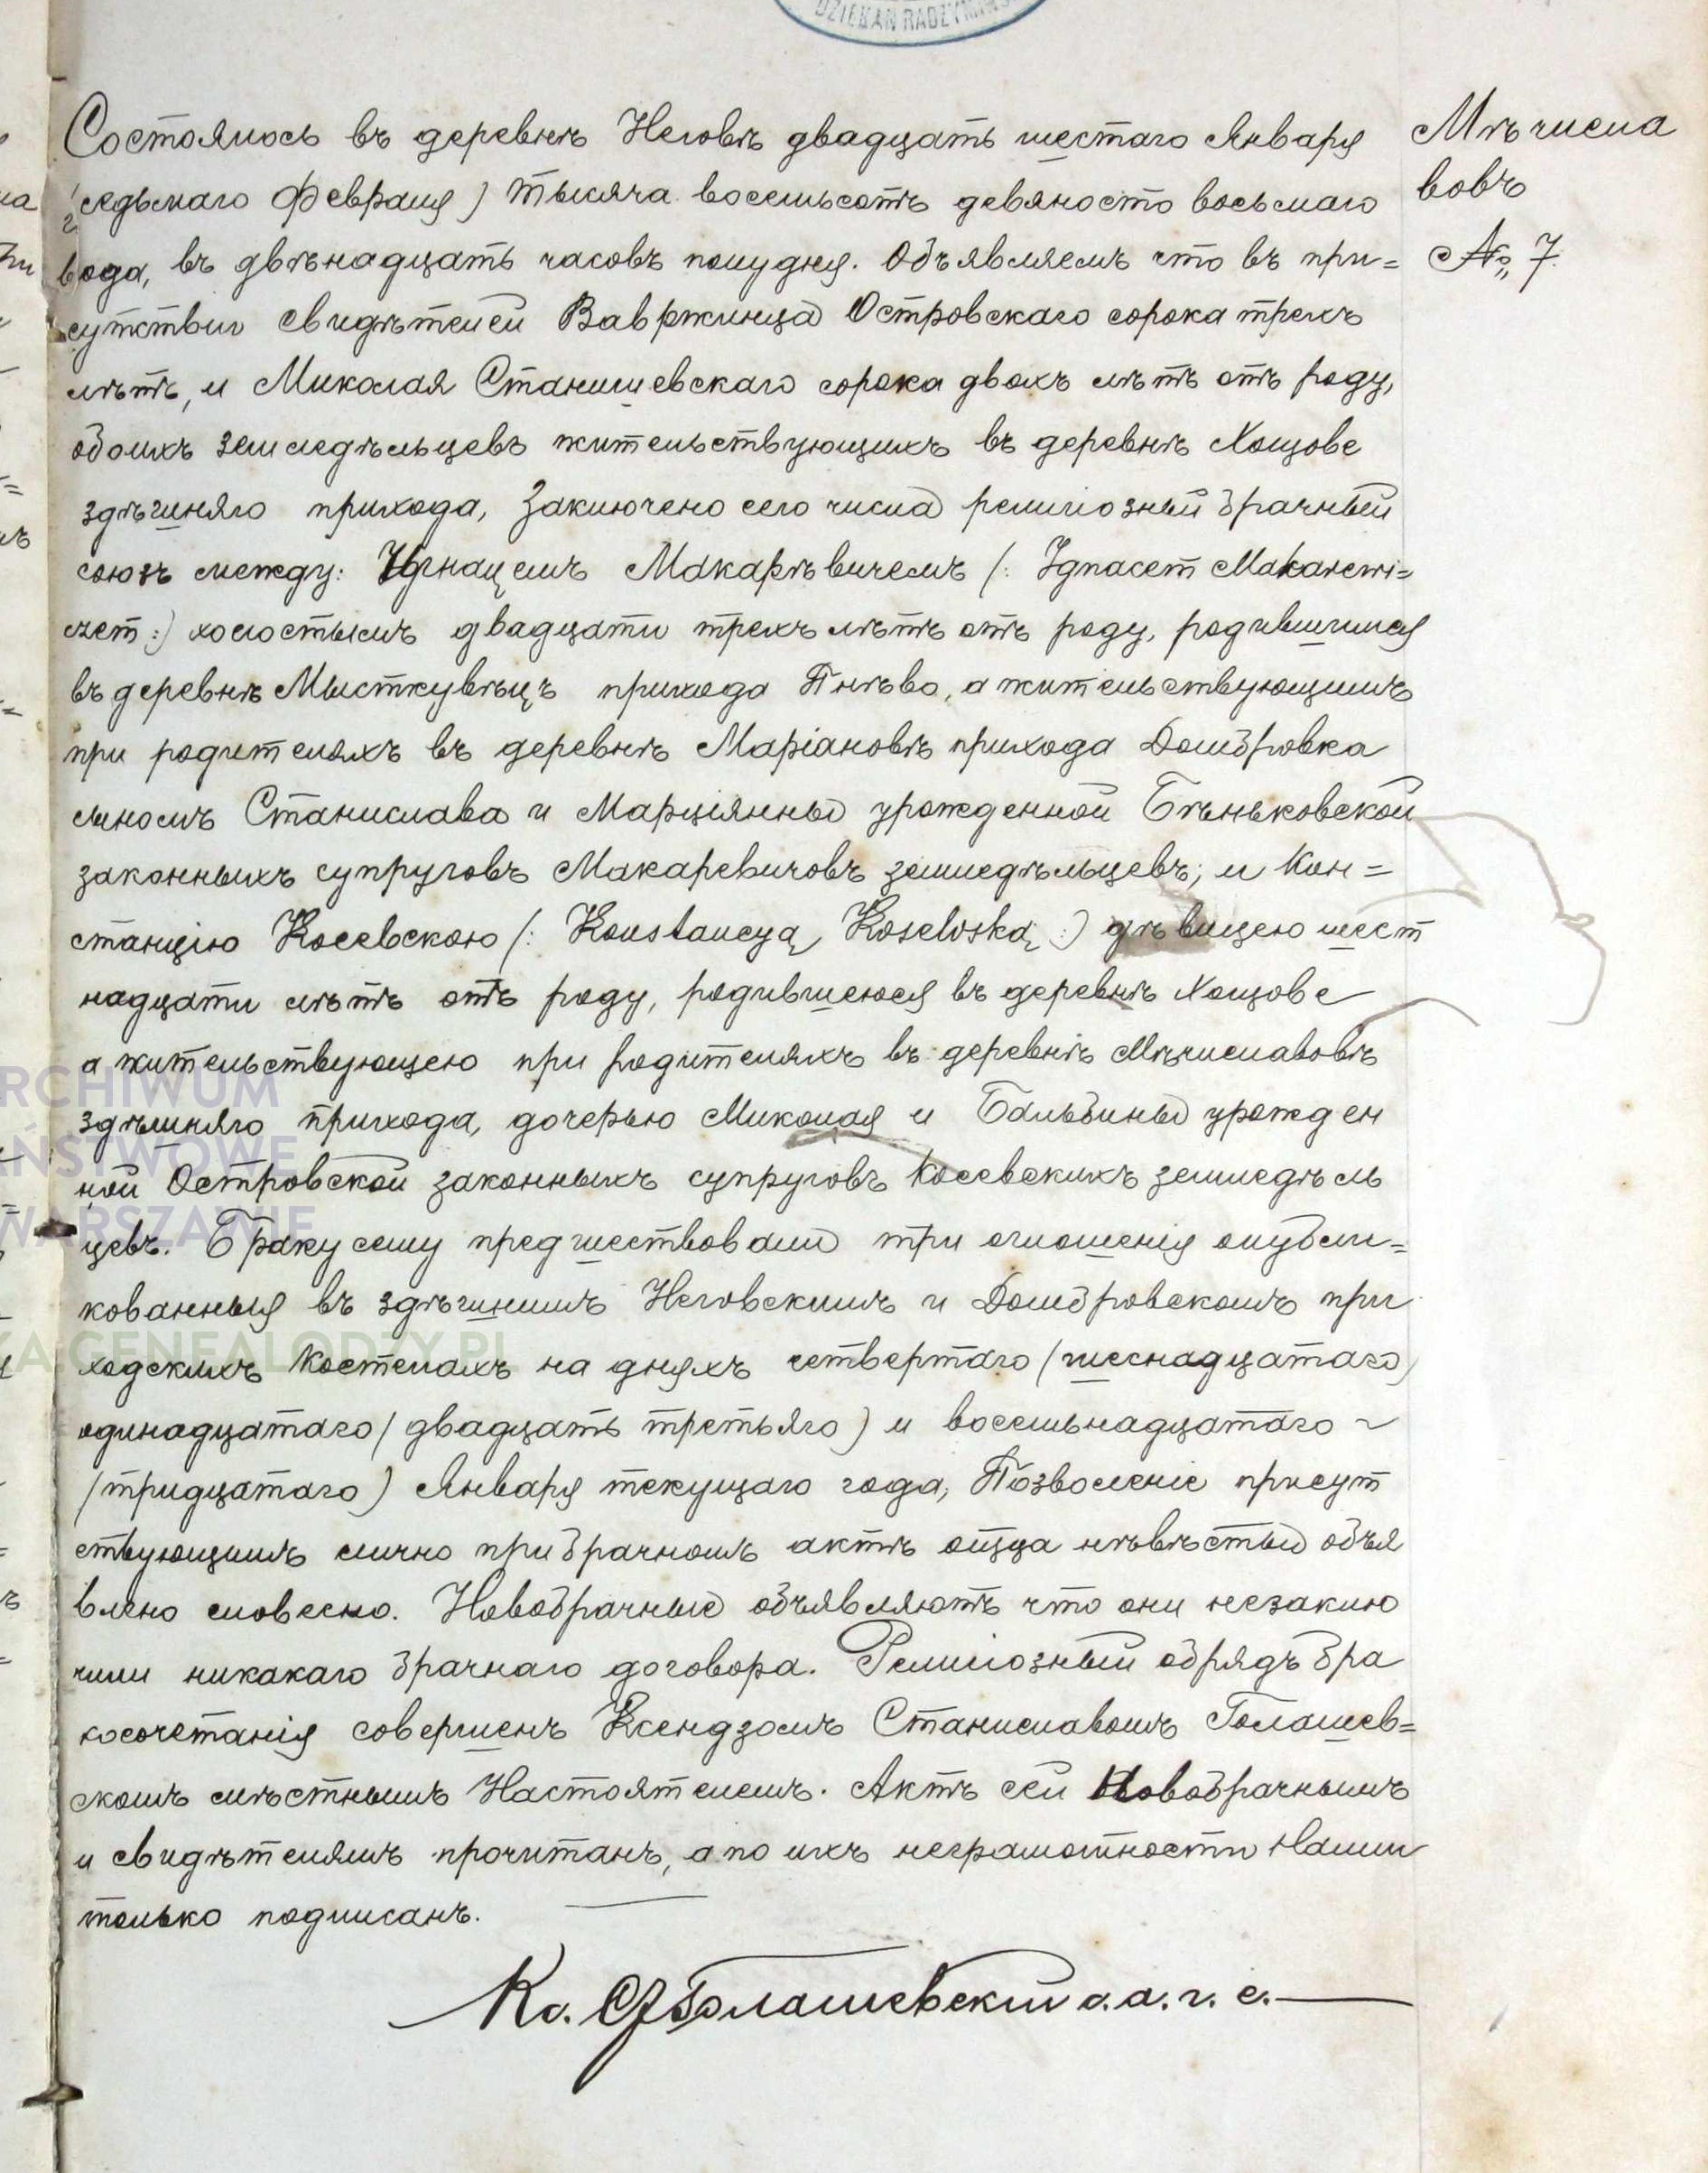 DZIEKAN RADZYMIŃS
Состоялось въ деревнѣ Неговѣ двадцать шестаго Января
Мѣчисла
/седьмаго Февраля) тысяча восемьсотъ девяносто восьмаго
вовъ
года, въ двѣнадцать часовъ полудня. Объявляемъ что въ при=
№ 7.
сутствіи свидѣтелей Вавржинца Островскаго сорока трехъ
лѣтъ, и Миколая Станишевскаго сорока двохъ лѣтъ отъ роду,
обоихъ земледѣльцевъ жительствующихъ въ деревнѣ Хощове
здѣшняго прихода, Заключено сего числа религіозный брачный
союзъ между: Игнацемъ Макарѣвичемъ /: Ignacem Makarewi=
czem :) холостымъ двадцати трехъ лѣтъ отъ роду, родившимся
въ деревнѣ Мысткувѣцъ прихода Пнѣво, а жительствующимъ
при родителяхъ въ деревнѣ Маріановѣ прихода Домбровка
сыномъ Станислава и Марціянны урожденной Бѣньковской
законныхъ супруговъ Макаревичовъ земледѣльцевъ; и Кон=
станцію Косевскою /: Konstancyą Kosewską :) дѣвицею шест
надцати лѣтъ отъ роду, родившеюся въ деревнѣ Хощове
а жительствующею при родителяхъ въ деревнѣ Мѣчиславовѣ
здѣшняго прихода, дочерью Миколая и Бальбины урожден
ной Островской законныхъ супруговъ Косевскихъ земледѣль
цевъ. Браку сему предшествовали три оглошенія опубли=
кованныя въ здѣшнимъ Неговскимъ и Домбровскомъ при
ходскихъ Костелахъ на дняхъ четвертаго /шеснадцатаго)
одинадцатаго /двадцать третьяго) и восемьнадцатаго ~
/тридцатаго) Января текущаго года, Позволеніе присут
ствующимъ лично при брачномъ актѣ отца нѣвѣсты объя
влено словесно. Новобрачные объявляютъ что они незаклю
чили никакаго брачнаго договора. Религіозный обрядъ бра
косочетанія совершенъ Ксендзомъ Станиславомъ Голашев=
скомъ мѣстнымъ Настоятелемъ. Актъ сей Новобрачнымъ
и свидѣтелямъ прочитанъ, а по ихъ неграмотности Нами
только подписанъ.
Кс. Ст Голашевскій с. а. г. с.
ARCHIWUM
PAŃSTWOWE
WARSZAWIE
KA GENEALODZY.PL